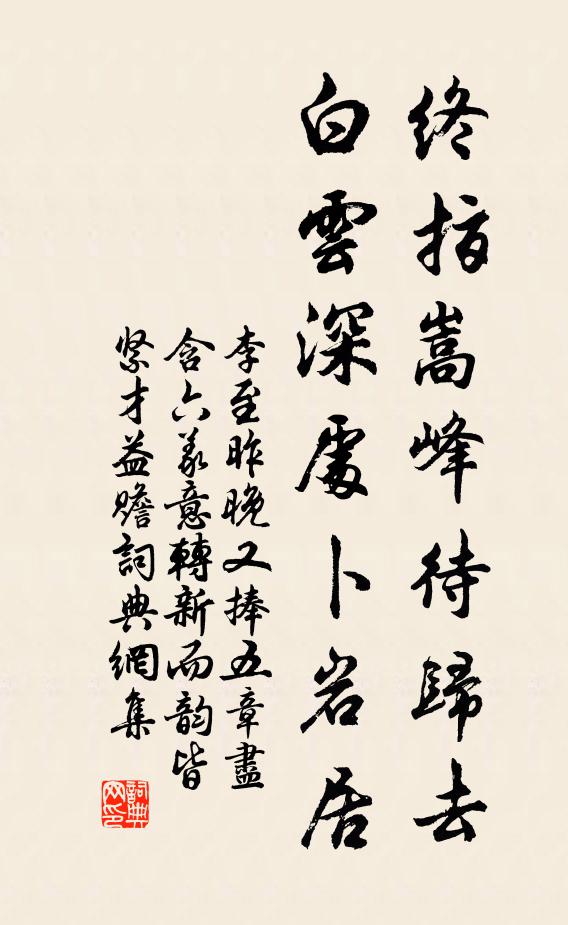 終指嵩峰待歸去
白雲深處卜岩居
李至昨晚又捧五章盡
含六義意轉新而韵皆
緊才益贍詞典網集
詞典网印